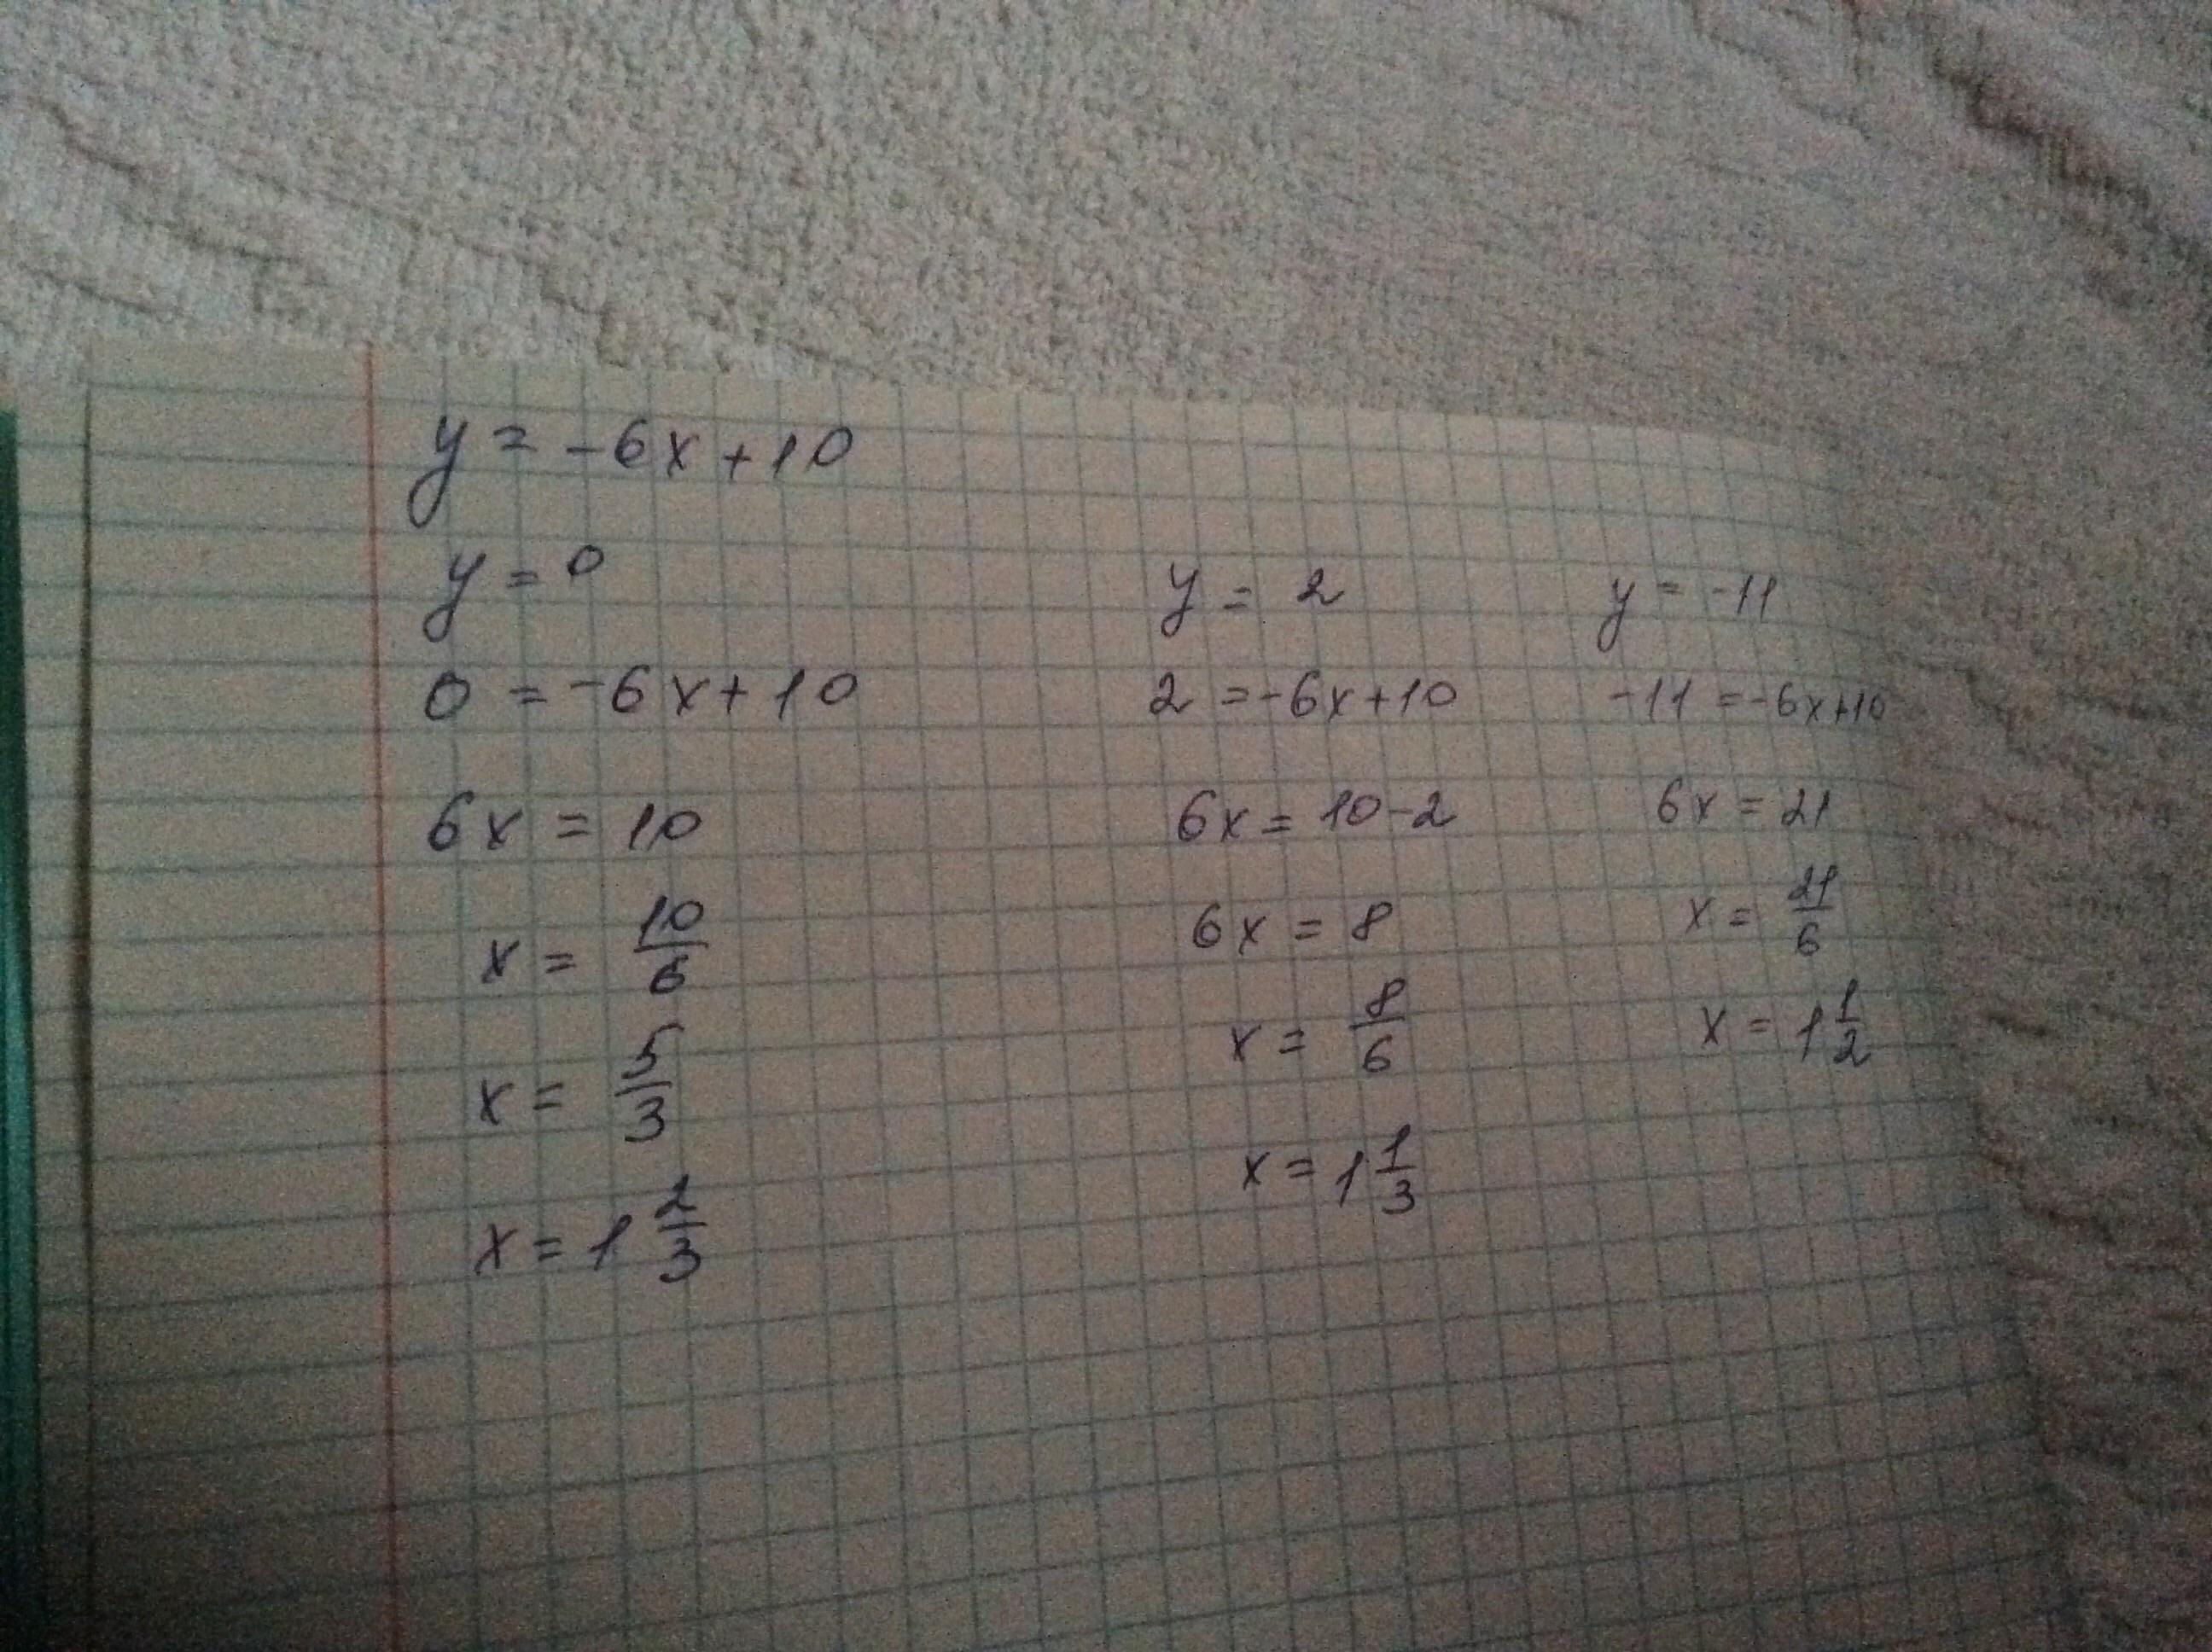 y = -6x + 10
y = 0
0 = -6x + 10
6x = 10
x = 10/6
x = 5/3
x = 1 2/3
y = 2
2 = -6x + 10
6x = 10 - 2
6x = 8
x = 8/6
x = 1 1/3
y = -11
-11 = -6x + 10
6x = 21
x = 21/6
x = 1 1/2